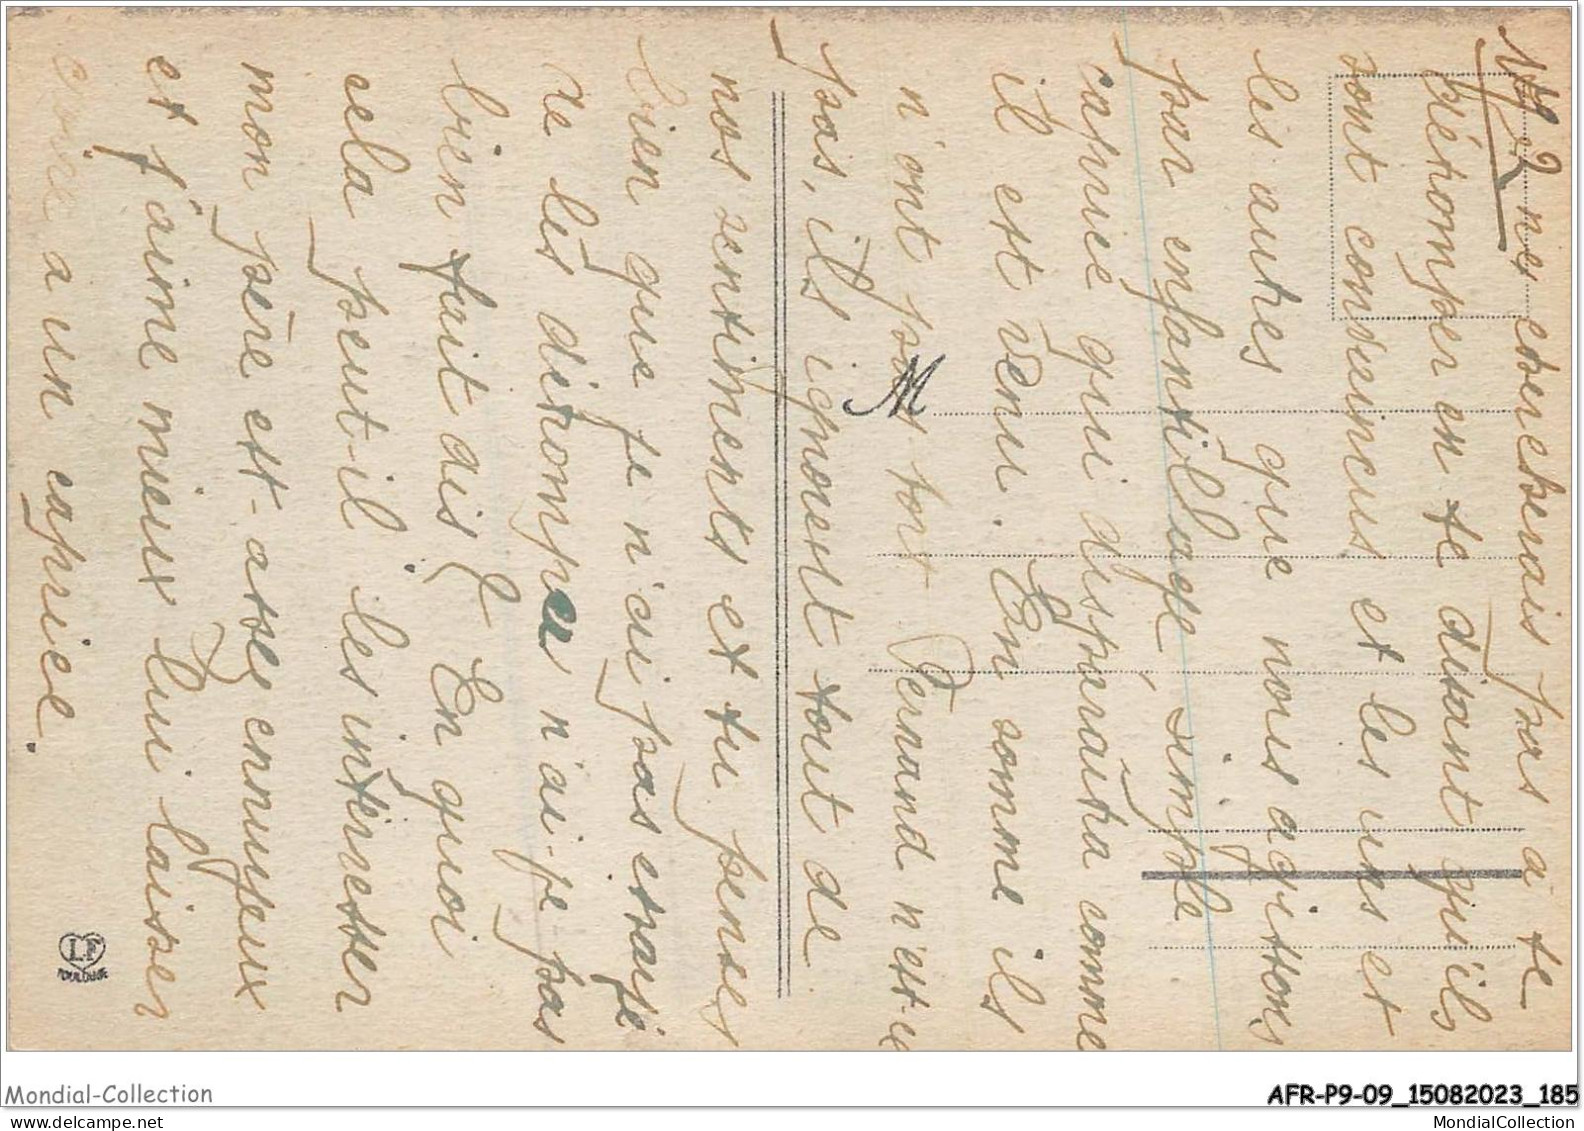 N° 2 ne chercherais pas à te
détromper en te disant qu'ils
sont convaincus et les uns et
les autres que nous agissons
par enfantillage, simple
caprice qui disparaîtra comme
il est venu. En somme ils
n'ont pas tort Fernand n'est-ce
pas, ils ignorent tout de
nos sentiments et tu penses
bien que je n'ai pas essayé
de les détromper n'ai-je pas
bien fait dis ? En quoi
cela peut-il les intéresser
mon père est-assez ennuyeux
et j'aime mieux lui laisser
croire a un caprice.
M
LF
TOULOUSE
Mondial-Collection
AFR-P9-09_15082023_185
MondialCollection